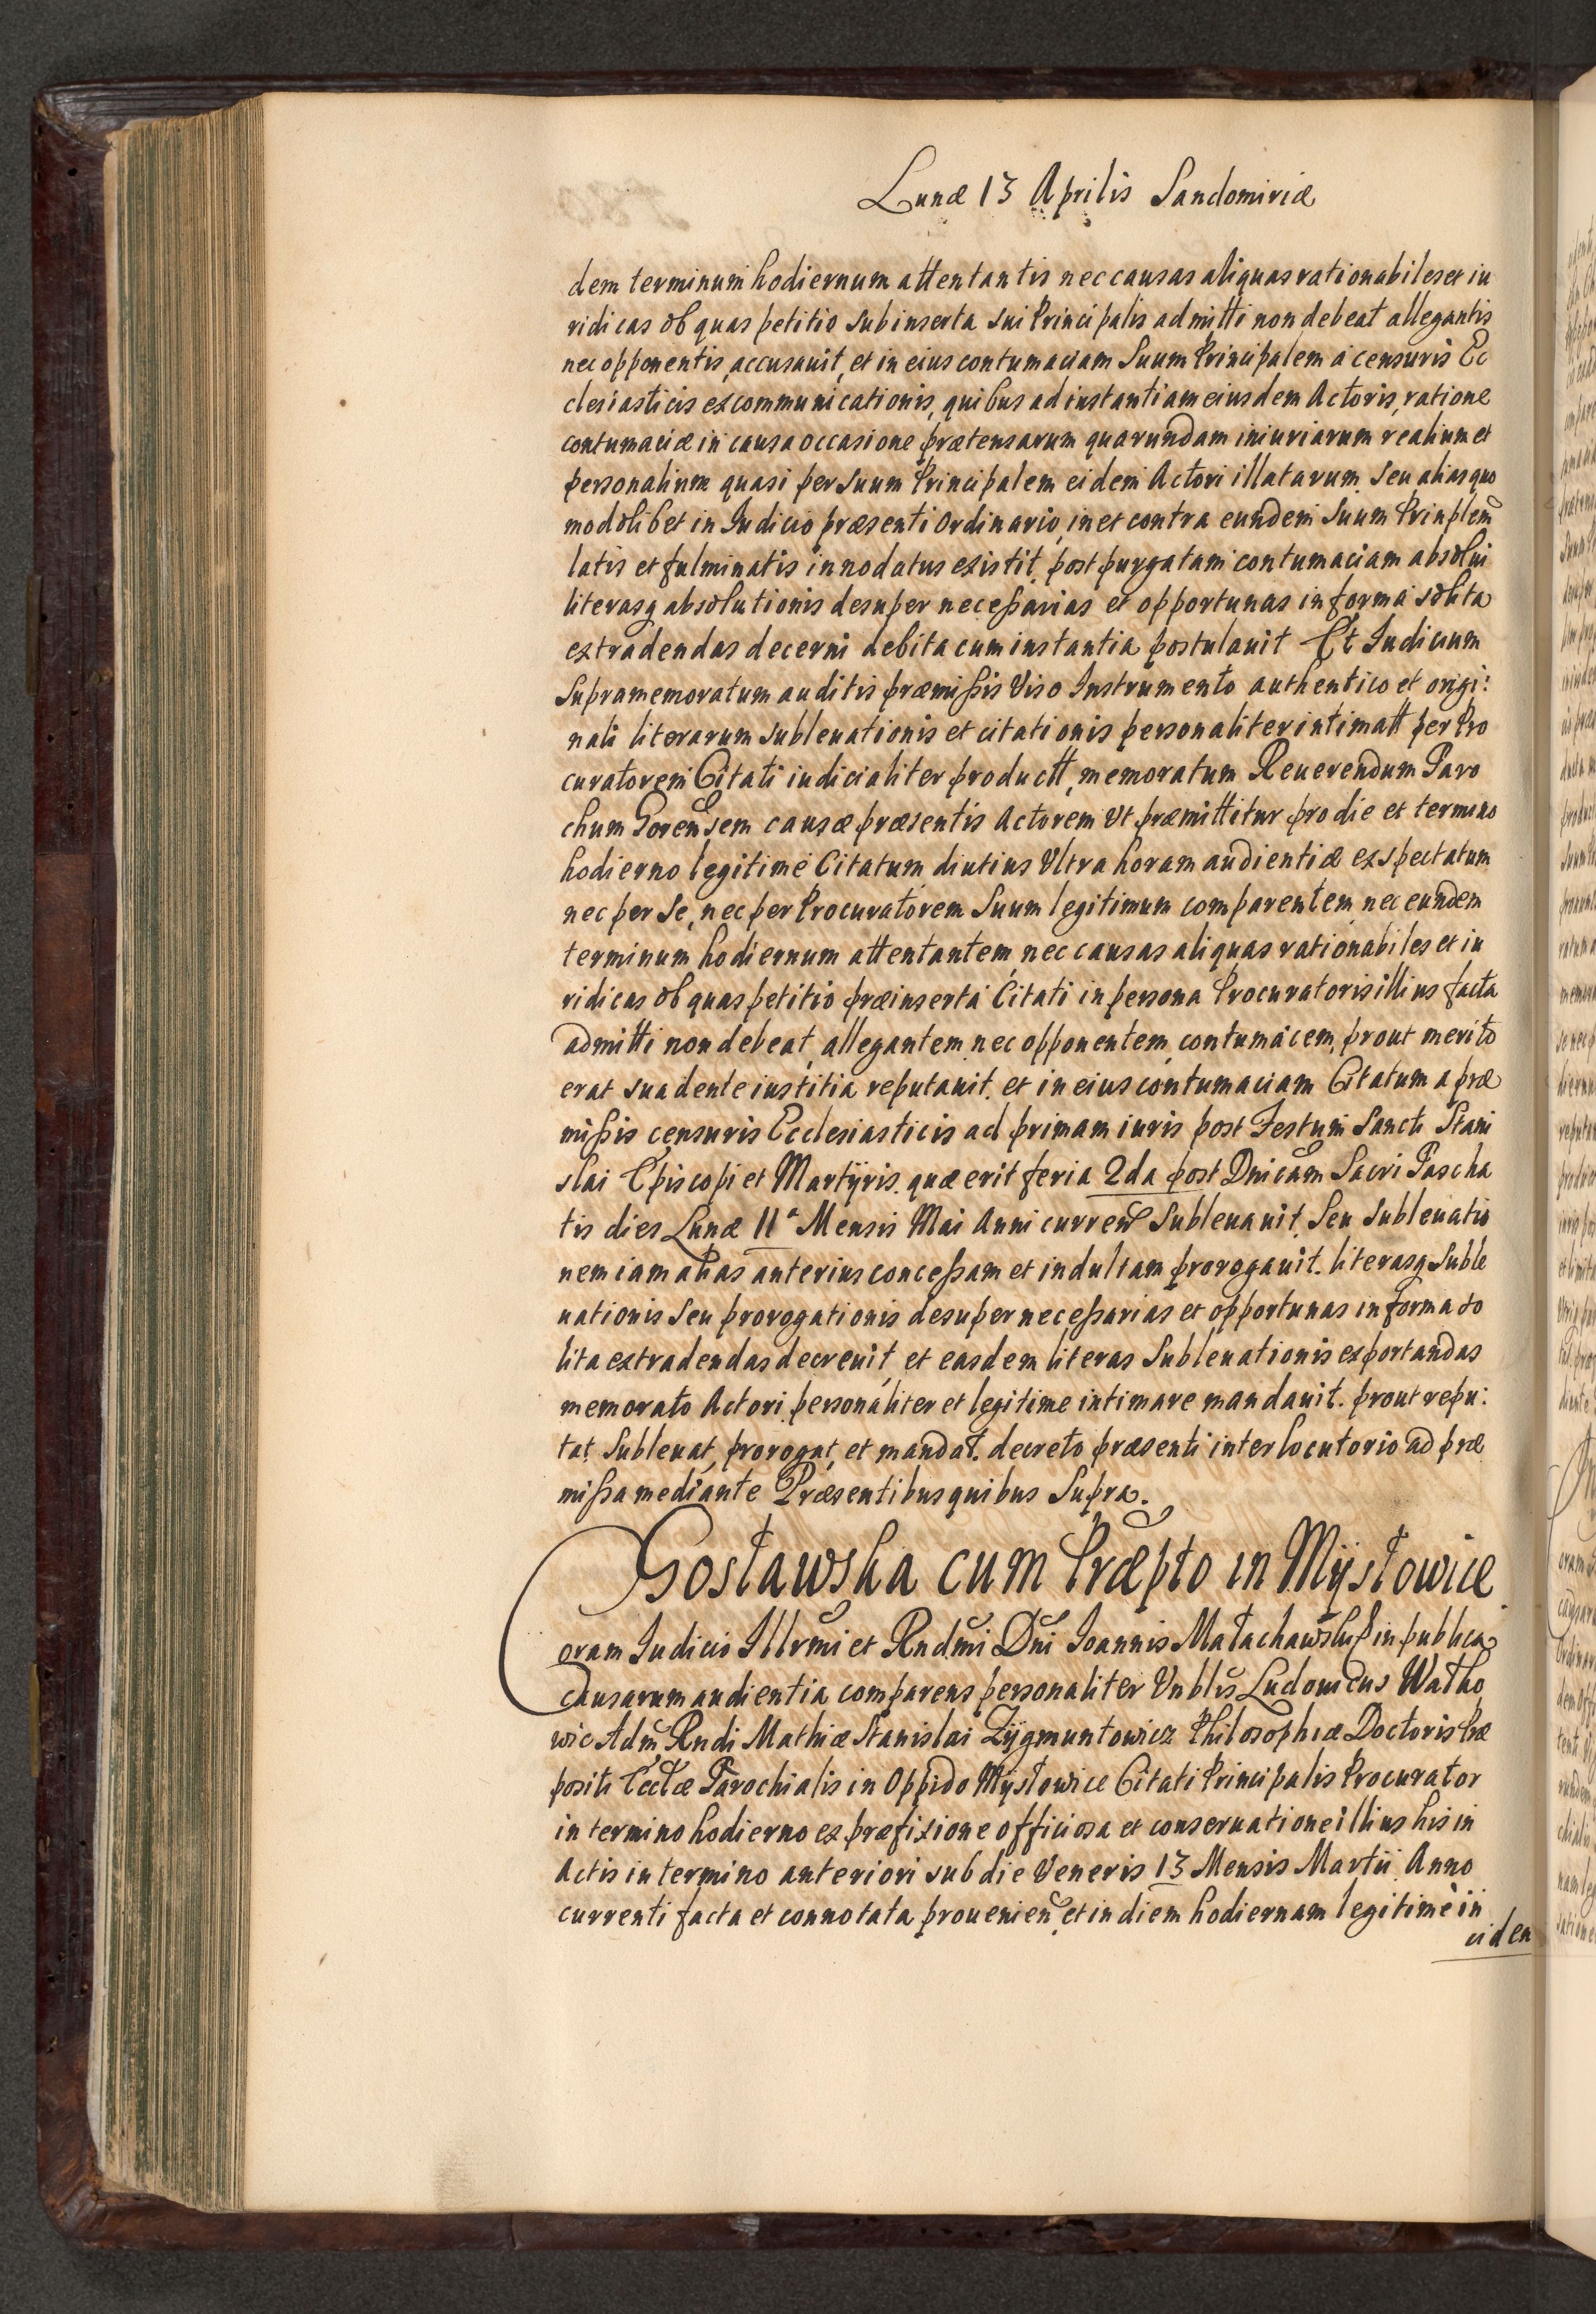 Lunæ 13 Aprilis Sandomiriæ
dem terminum hodiernum attentantis nec causas aliquas rationabiles et iu
ridicas ob quas petitio subinserta sui Principalis admitti non debeat allegantis
nec opponentis, accusauit, et in eius contumaciam Suum Principalem a censuris Ec
clesiasticis excommunicationis, quibus ad instantiam eiusdem Actoris, ratione
contumaciæ in causa occasione prætensarum quarundam iniuriarum realium et
personalium quasi per suum Principalem eidem Actori illatarum seu alias quo
modolibet in Iudicio præsenti ordinario, in et contra eundem Suum Prinplem
latis et fulminatis innodatus existit, post purgatam contumaciam absolui
literasq absolutionis desuper necessarias et opportunas in forma solita
extradendas decerni debita cum instantia postulauit Et Iudicium
Supramemoratum auditis præmissis Viso Instrumento authentico et origi:
nali literarum subleuationis et citationis personaliter intimatt per Pro
curatorem Citati iudicialiter productt, memoratum Reuerendum Paro
chum Gorensem causæ præsentis Actorem Vt præmittitur pro die et termino
hodierno legitime Citatum diutius Vltra horam audientiæ exspectatum
nec per Se, nec per Procuratorem Suum legitimum comparentem nec eundem
terminum hodiernum attentantem, nec causas aliquas rationabiles et iu
ridicas ob quas petitio præinserta Citati in persona Procuratoris illius facta
admitti non debeat, allegantem nec opponentem contumacem, prout merito
erat suadente iustitia reputauit. et in eius contumaciam Citatum a præ
missis censuris Ecclesiasticis ad primam iuris post Festum Sancti Stani
slai Episcopi et Martÿris. quæ erit feria 2da post Dnicam Sacri Pascha
tis dies Lunæ 11a Mensis Mai Anni curren Subleuauit. Seu subleuatio
nem iam alias anterius concessam et indultam prorogauit. literasq Suble
uationis seu prorogationis desuper necessarias et opportunas in forma so
lita extradendas decreuit, et easdem literas Subleuationis exportandas
memorato Actori personaliter et legitime intimare mandauit. prout repu:
tat, Subleuat, prorogat, et mandat. decreto præsenti interlocutorio ad præ
missa mediante Præsentibus quibus Supra.
Gosławska cum Præpto in Mÿsłowice
Coram Iudicio Illrmi et Rndmi Dni Ioannis Małachawski in publica
Causarum audientia comparens personaliter Vnblis Ludouicus Watho
wic Adm Rndi Mathiæ Stanislai Zÿgmuntowicz Philosophiæ Doctoris Præ
positi Ecclæ Parochialis in Oppido Mÿsłowice Citati Principalis Procurator
in termino hodierno ex præfixione officiosa et conseruatione illius his in
Actis in termino anteriori sub die Veneris 13 Mensis Martii Anno
currenti facta et connotata prouenien et in diem hodiernam legitime in
ciden